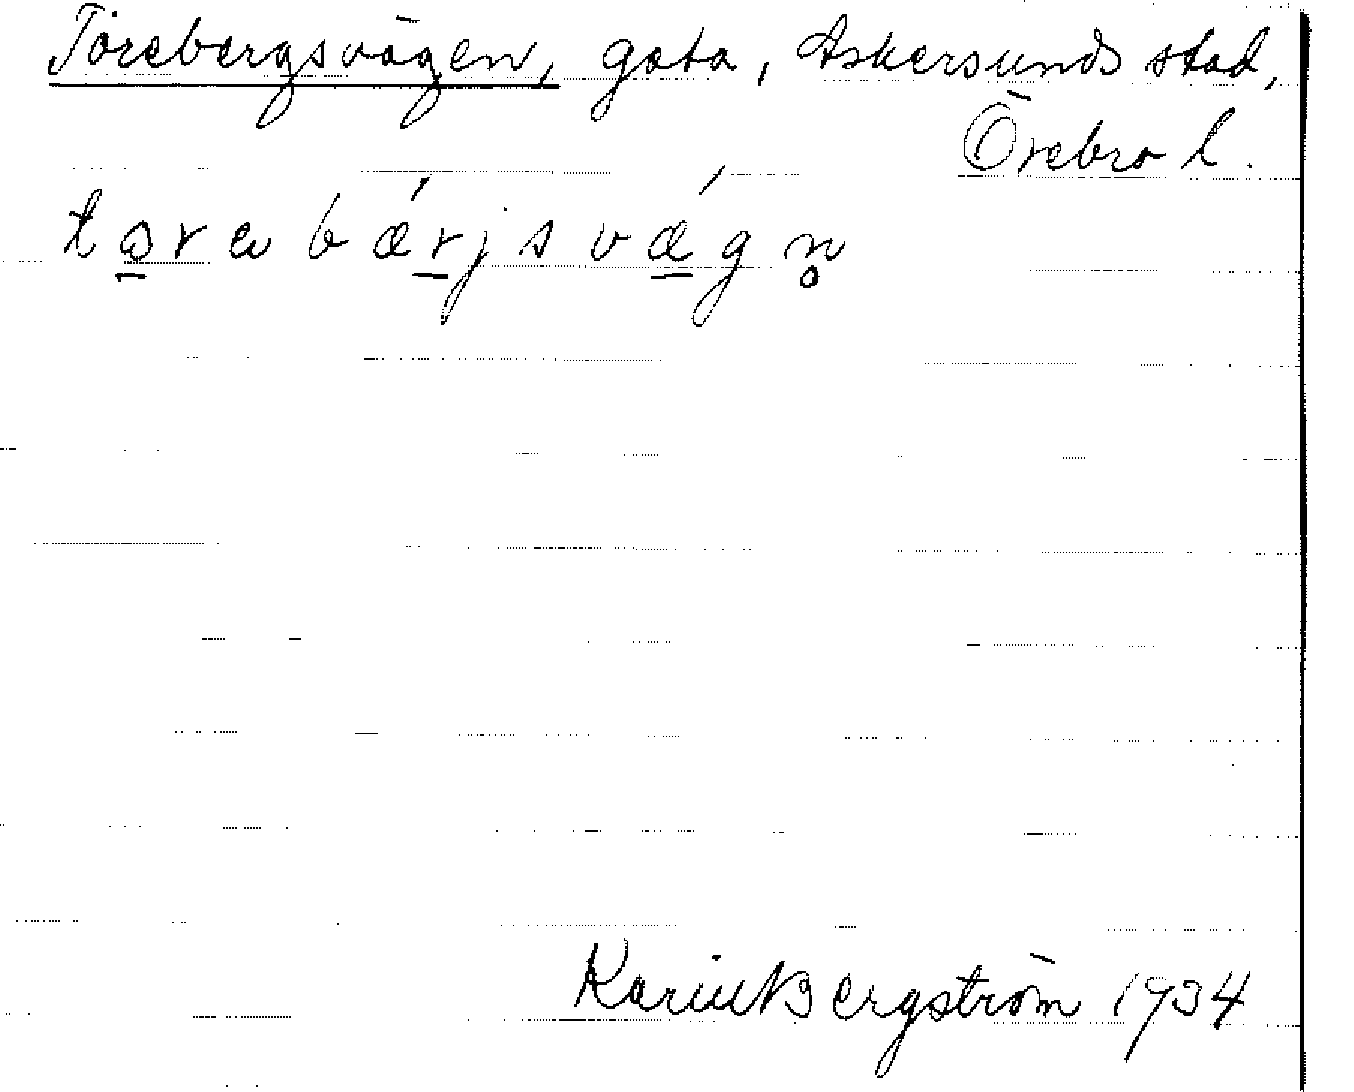 Torebergsvägen, gata, Askersunds stad,
Örebro l.
torebǽrjsvǽgn̥
Karin Bergström 1934